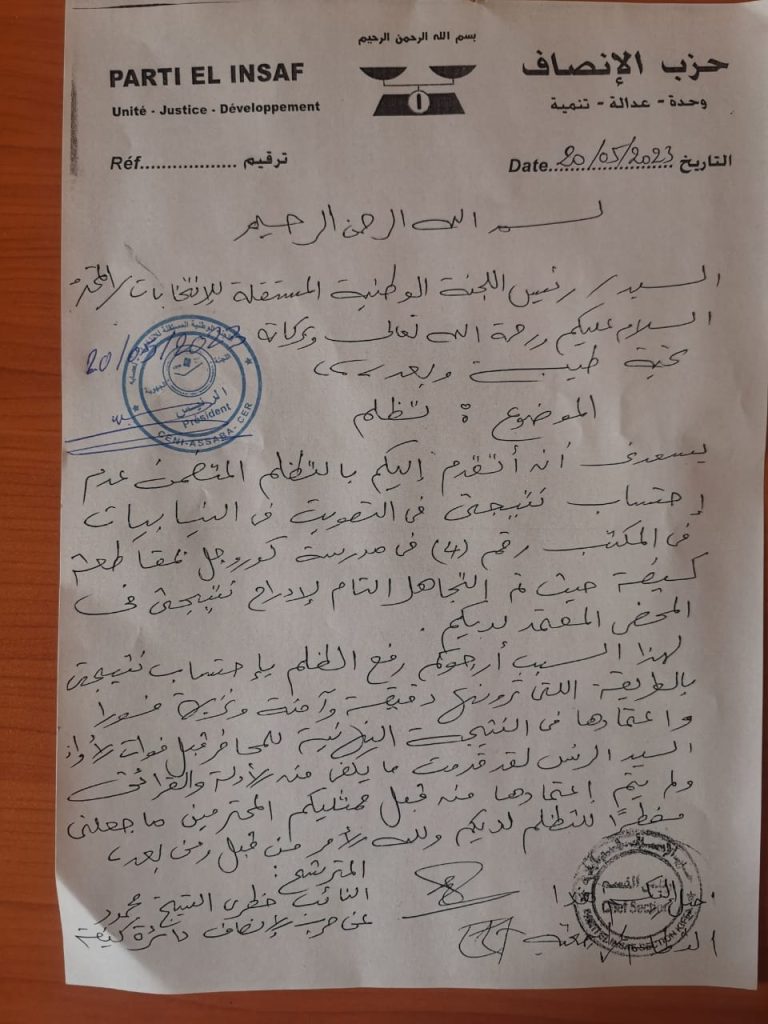 بسم الله الرحمن الرحيم
PARTI EL INSAF
حزب الإنصاف
Unité - Justice - Développement
وحدة - عدالة - تنمية
Réf.................. ترقيم
Date...20/05/2023 التاريخ
بسم الله الرحمن الرحيم
السيد / رئيس اللجنة الوطنية المستقلة للإنتخابات /المحترم
السلام عليكم ورحمة الله تعالى وبركاته
20/05/2023
تحية طيبة وبعد،،،
الرئيس
Président
CENI-ASSABA-CER
الموضوع : تظلم
يسعدني أن أتقدم إليكم بالتظلم المتضمن عدم
إحتساب نتيجتي في التصويت في النيابيات
في المكتب رقم (4) في مدرسة كوروجل بمقاطعة
كيفة حيث تم التجاهل التام لإدراج نتيجتي في
المحضر المعتمد لديكم.
لهذا السبب أرجوكم رفع الظلم بإحتساب نتيجتي
بالطريقة اللتي ترونها دقيقة وآمنة ونزيهة فورا
واعتمادها في النتيجة النهائية للمحاضر قبل فوات الأوان
السيد الرئس لقد قدمت ما يكفي من الأدلة والقرائن
ولم يتم إعتمادها من قبل ممثليكم المحترمين ما جعلني
مضطرًا للتظلم لديكم ولله الأمر من قبل ومن بعد،
المترشح :
النائب خطري الشيخ محمود
عن حزب الإنصاف دائرة كيفة
رئيس القسم
Chief Section
PARTI EL INSAF SECTION KIFFA